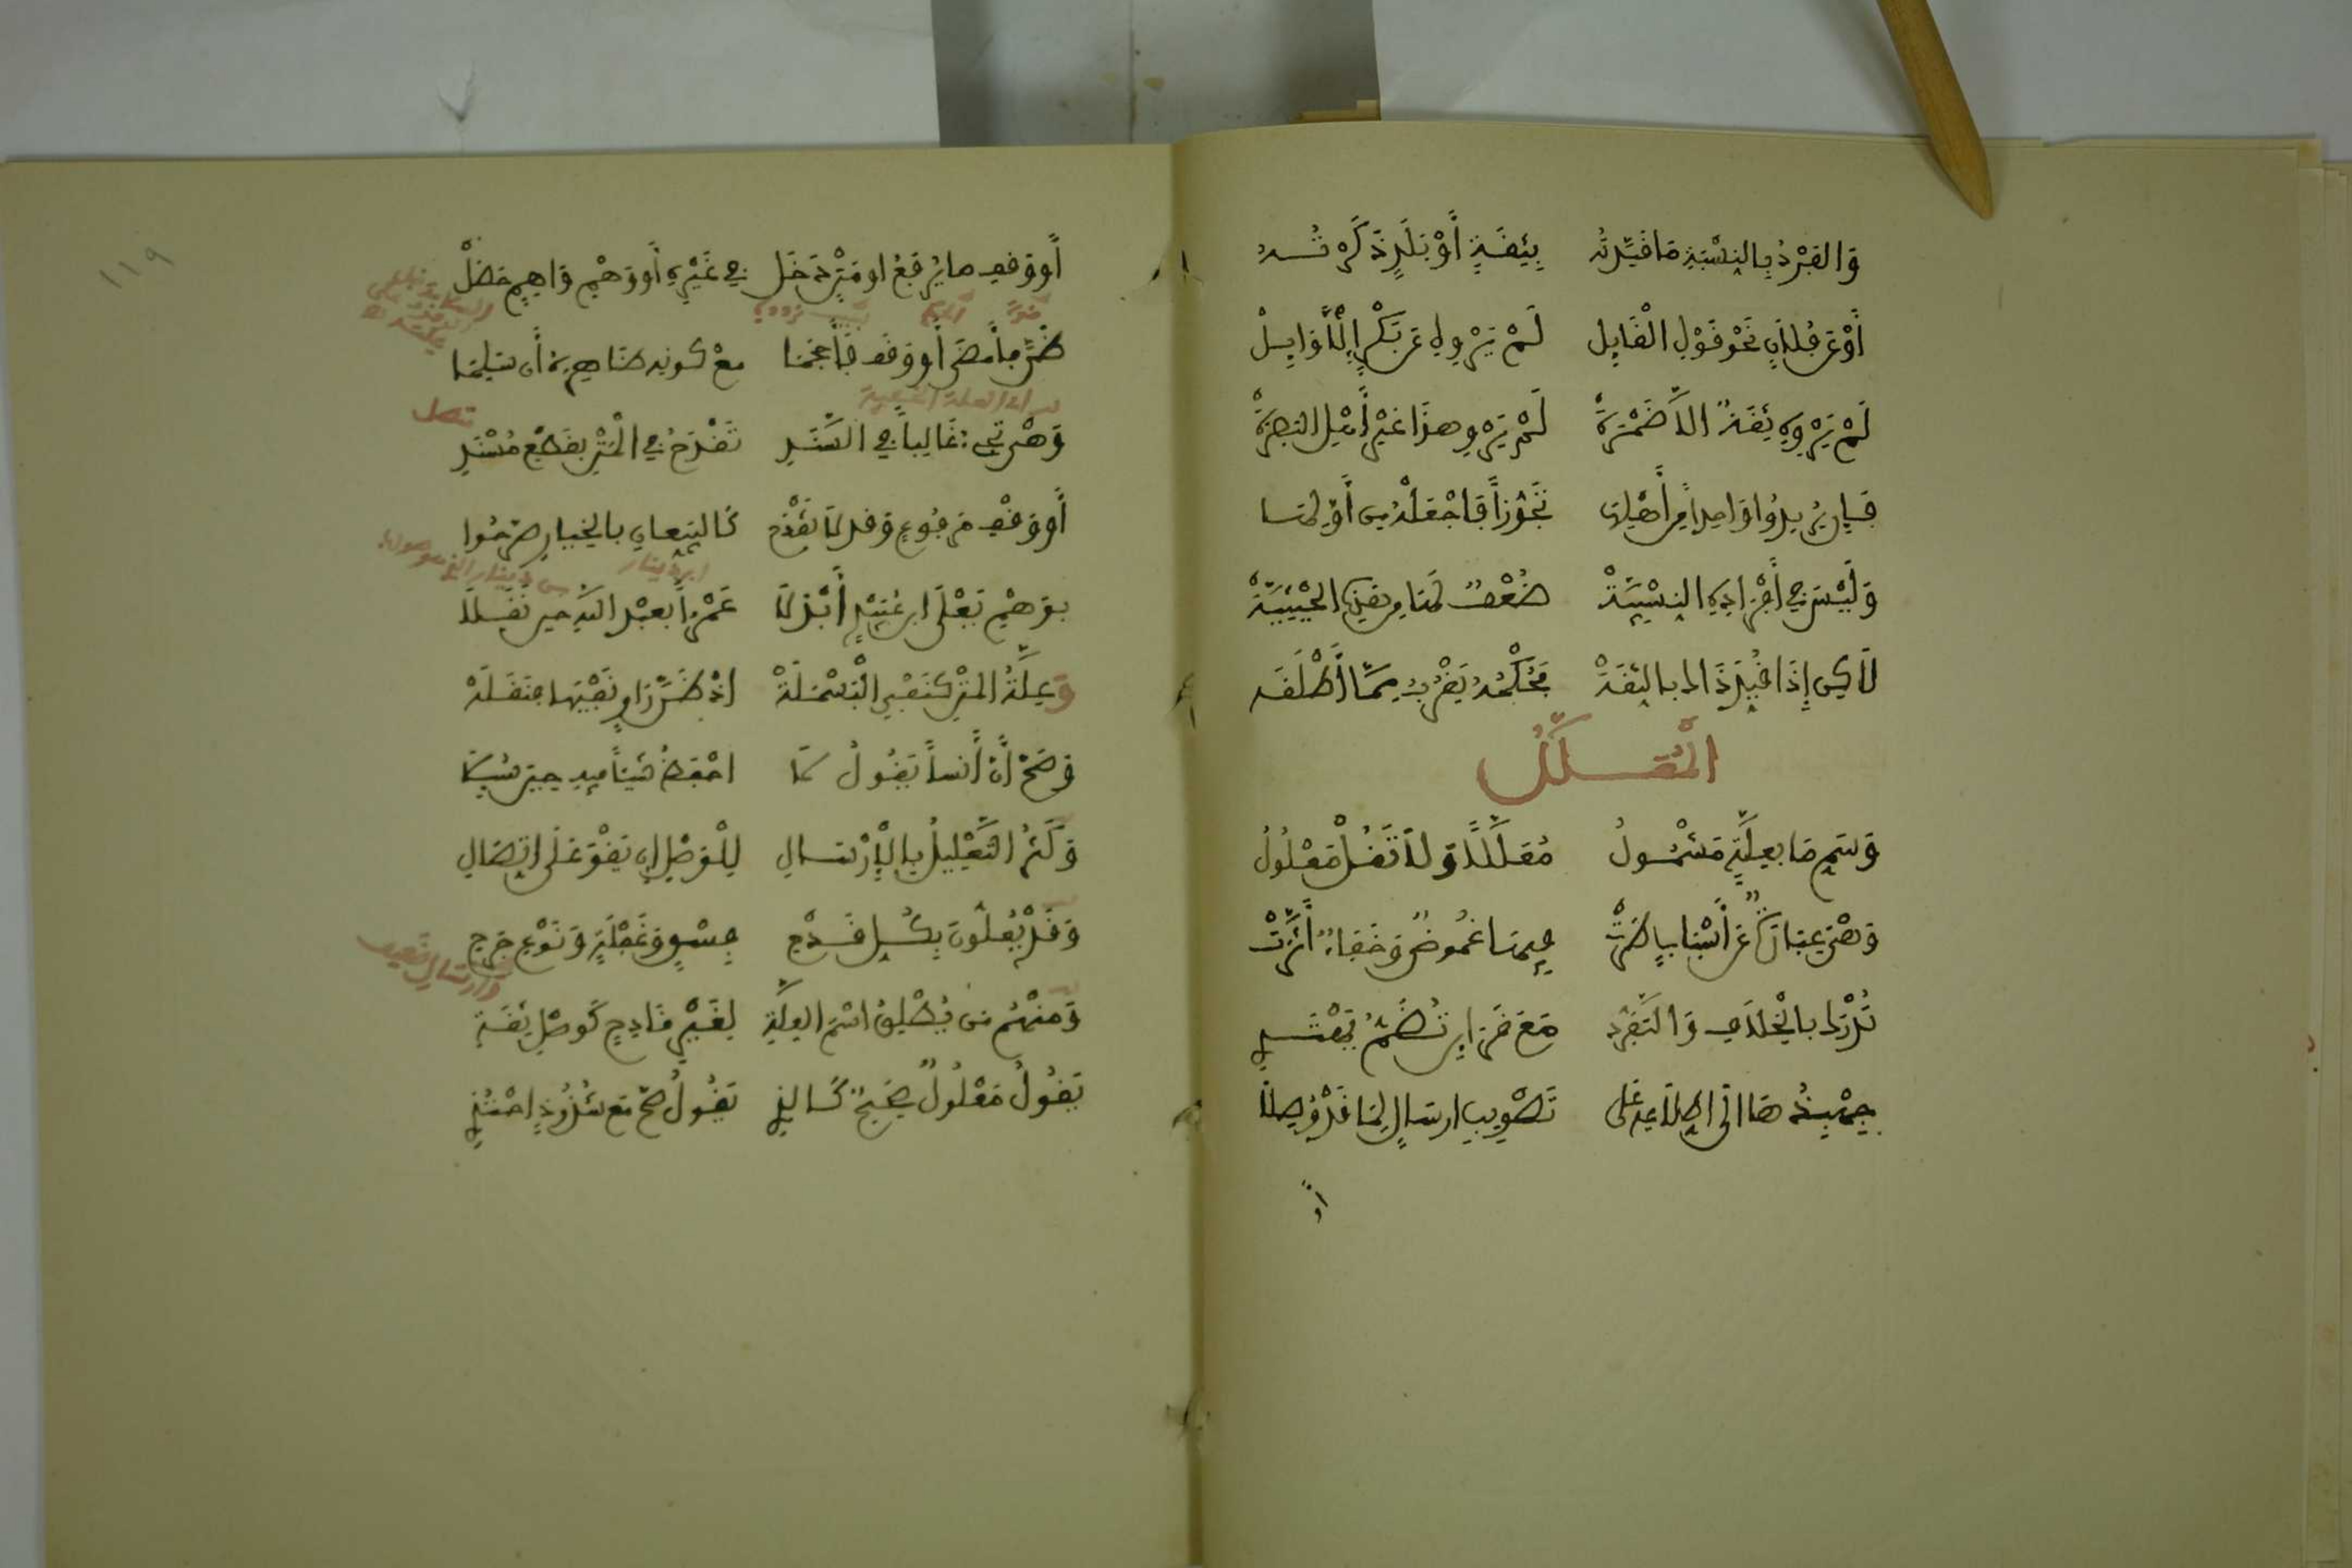 وَالفَرْدُ بِالنِسْبَةِ مَا قَيَّدْتَهُ بِثِقَةٍ أَوْ بَلَدٍ ذَكَرْتَهُ
أَوْ عَن فُلَانٍ نَحْوَ قَوْلِ الْقَائِلِ لَمْ يَرْوِهِ عَن بَكْرٍ إِلَّا وَائِلْ
لَمْ يَرْوِهِ ثِقَةٌ الَّا ضَمْرَةْ لَمْ يَرْوِ هذَا غَيْرُ أَهْلِ البَصْرَةْ
فَإِن يُرِيدُوا وَاحِداً مِن أَهْلِهَا تَجَوُّزاً فَاجْعَلْهُ مِن أَوَّلِهَا
وَلَيْسَ فِي أَفْرَادِهِ النِسْبِيَّةْ ضُعْفٌ لَهَا مِن هَذِهِ الحَيْثِيَّةْ
لَاكِن إِذَا قَيَّدَ ذَاكَ بِالثِقَةْ فَحُكْمُهُ يَقْرُبُ مِمَّا أَطْلَقَهْ
الْمُعَلَّلُ
وَسَمِّ مَا بِعِلَّةٍ مَشْمُولُ مُعَلَّلًا وَلَا تَقُلْ مَعْلُولُ
وَهْيَ عِبَارَةٌ عَن أَسْبَابٍ طَرَتْ فِيهَا غُمُوضٌ وَخَفَاءٌ أَثَّرَتْ
تُدْرَكُ بِالْخِلَافِ وَالتَّفَرُّدِ مَعَ قَرَائِنٍ تُضَمُّ يَهْتَدِي
جِهْبِذُهَا الَى اطِّلَاعِهِ عَلَى تَصْوِيبِ ارسَالٍ لِمَا قَدْ وُصِلَا
أو
١١٩
أَو وَقفِ ما يُرْفَعُ او مَتْنٍ دَخَل فِي غَيْرِهِ أَو وَهْمِ وَاهِمٍ حَصَلْ
ظَنَّ فأَمْضَى أَو وَقَف فَأَحْجَمَا معْ كَونِه ظَاهِرَهُ أَن سَلِمَا
وَهْيَ تَجِيءُ غَالِباً فِي السَّنَدِ تَقْدَحُ فِي الْمَتْنِ بِقَطْعِ مُسْنَدِ
أَو وَقْفِ مَرفُوعٍ وَقد لَا يَقْدَحُ كَالبَيِّعَانِ بالخِيَارِ صَرَّحُوا
بِوَهْمِ يَعْلَى ابنِ عُبَيْدٍ أَبْدَلَا عَمْراً بعَبْدِ اللَّهِ حِين نَقَلَا
وَعِلَّةُ المَتْنِ كَنَفْيِ الْبَسْمَلَةْ اذْ ظَنَّ رَاوٍ نَفْيَهَا فَنَقَلَهْ
وَصَحَّ أَنَّ أَنَساً يَقُولُ لَا احْفَظُ شَيْئاً فِيهِ حِينَ سُئِلَا
وَكَثُرَ التَّعْلِيلُ بِالْإِرْسَالِ لِلْوَصْلِ إِن يَقْوَ عَلَى اتِّصَالِ
وَقَدْ يُعِلُّونَ بِكُلِّ قَدْحِ فِسْقٍ وَغَفْلَةٍ وَنَوْعِ جَرْحِ
وَمِنْهُم مَن يُطْلِقُ اسْمَ العِلَّةِ لِغَيْرِ قَادِحٍ كَوَصْلِ ثِقَةِ
يَقُولُ مَعْلُولٌ صَحِيحٌ كَالذِي يَقُولُ صَحَّ مَع شُذُوذٍ احْتُذِي